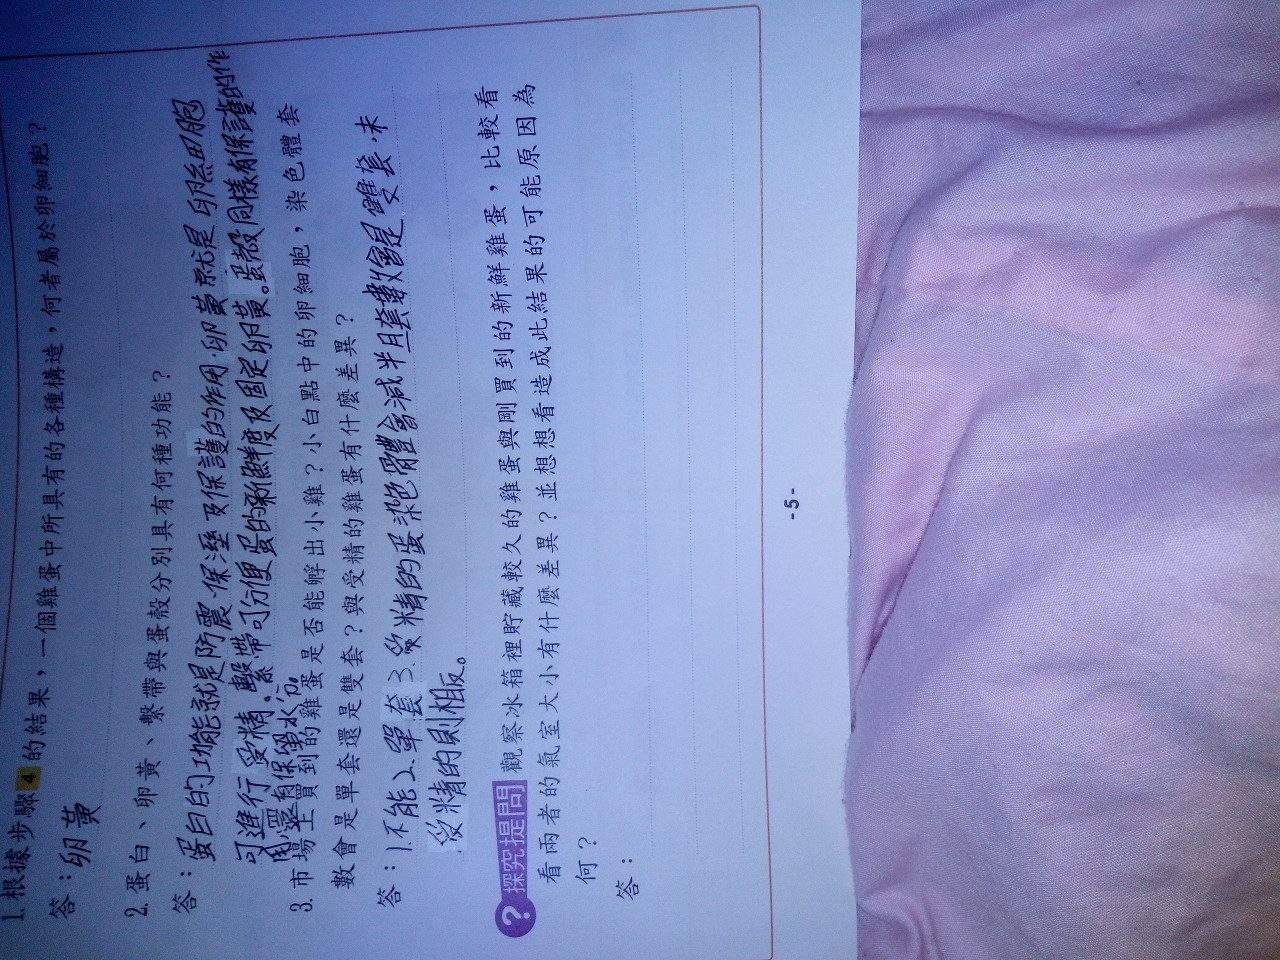 1. 根據步驟 4 的結果，一個雞蛋中所具有的各種構造，何者屬於卵細胞？
答：卵黃
2. 蛋白、卵黃、繫帶與蛋殼分別具有何種功能？
答：蛋白的功能就是防震、保溼及保護的作用，卵黃就是卵細胞
可進行受精，繫帶可方便蛋的新鮮度及固定卵黃。蛋殼同樣有保護的作
用還有保留水分。
3. 市場上買到的雞蛋是否能孵出小雞？小白點中的卵細胞，染色體套
數會是單套還是雙套？與受精的雞蛋有什麼差異？
答：1.不能2.單套3.受精的蛋染色體會減半且套數會是雙套，未
受精的則相反。
? 探究提問 觀察冰箱裡貯藏較久的雞蛋與剛買到的新鮮雞蛋，比較看
看兩者的氣室大小有什麼差異？並想想看造成此結果的可能原因為
何？
答：
-5-